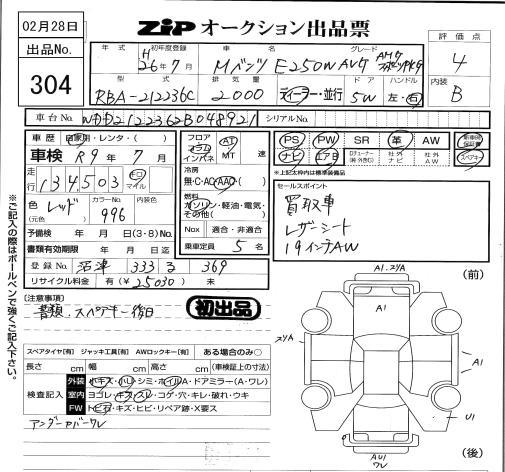 02月28日
出品No.
304
ZIP オークション出品票
評価点
4
内装
B
年式 初年度登録 車名 グレード
H26年7月 Mベンツ E250W AVG AMG スポーツPKG
型式 排気量 ドア ハンドル
RBA-212236C 2000 ディーラー・並行 5W 左・右
車台No. WDD2122362B048921 シリアルNo.
車歴 自家用・レンタ・( )
車検 R9年7月
走行 134503 キロ マイル
色 レッド (元色) カラーNo. 996 内装色
予備検 年 月 日(3・8)No.
書類有効期限 年 月 日迄
登録No. 沼津 333 る 369
リサイクル料金 有(¥25030) 未
フロア コラム インパネ AT MT 速
冷房 無・C・AC・AAC・( )
燃料 ガソリン・軽油・電気・その他( )
Nox 適合・非適合
乗車定員 5名
PS PW SR 革 AW 新車時保証書
ナビ エアB 社外ナビ 社外AW スペアキー
※上記太枠内は標準装備品
セールスポイント
買取車
レザーシート
19インチAW
(注意事項)
書類、スペアキー後日
初出品
スペアタイヤ[有] ジャッキ工具[有] AWロックキー[有] ある場合のみ○
長さ cm 幅 cm 高さ cm (車検証上の寸法)
検査記入
外装 小キズ・ハレ・シミ・ホイルA・ドアミラー(A・ワレ)
室内 ヨゴレ・キズ・スレ・コゲ・穴・キレ・破れ・ウキ
FW トビ石・キズ・ヒビ・リペア跡・X要ス
アンダーカバーワレ
※ご記入の際はボールペンで強くご記入下さい。
(前)
A1.スリA
A1
スリA
A1
U1
AU1
ワレ
(後)